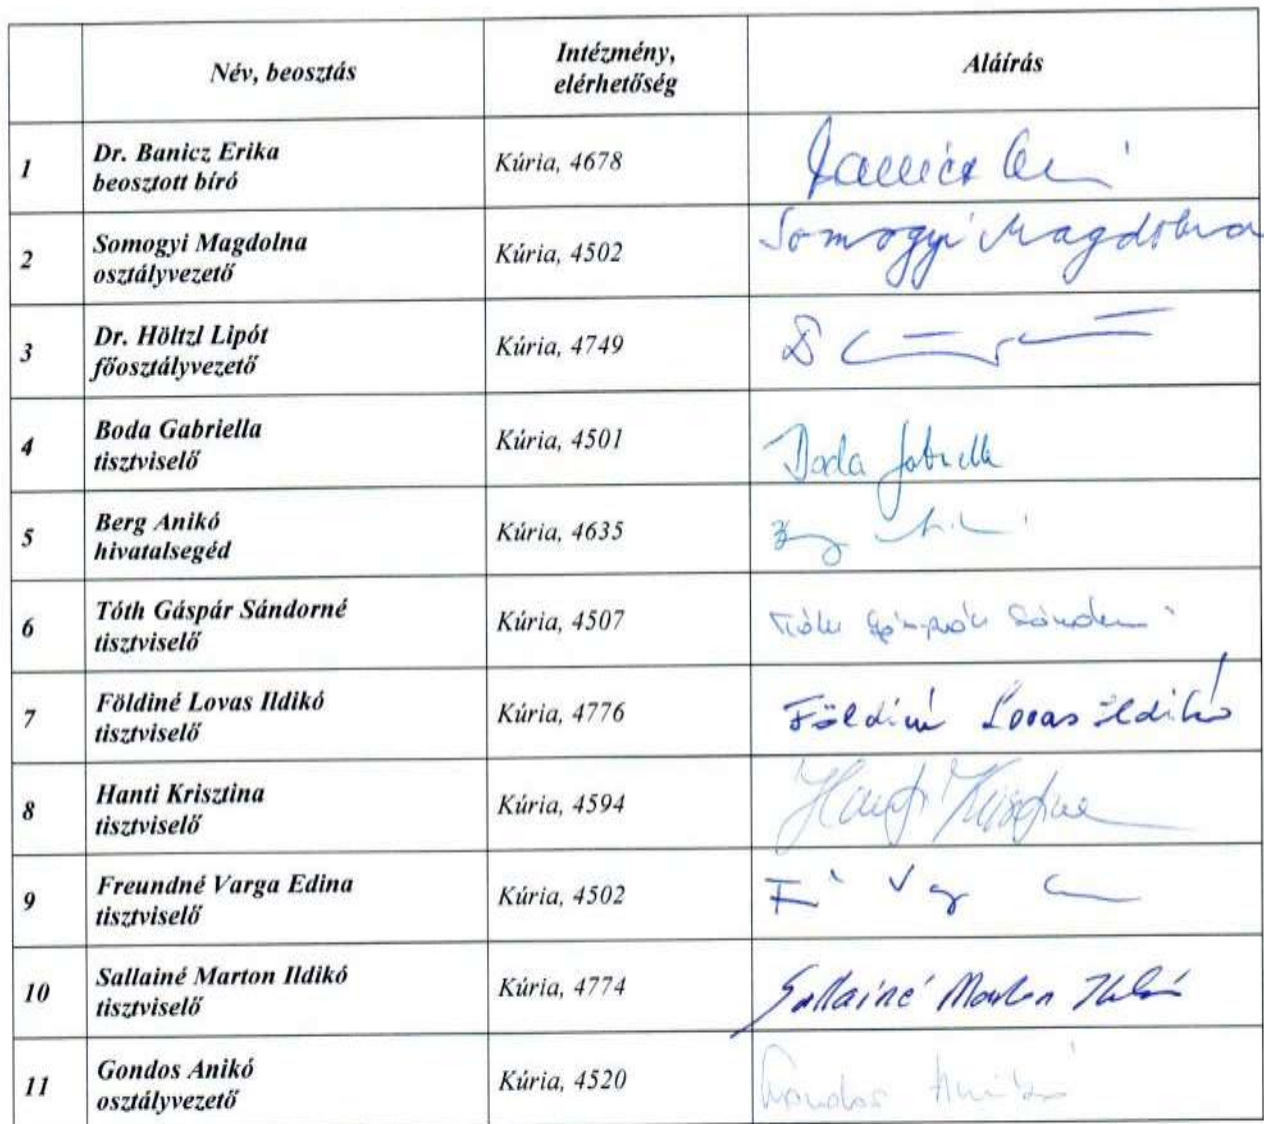 Név, beosztás
Intézmény,
elérhetőség
Aláírás
1
Dr. Banicz Erika
beosztott bíró
Kúria, 4678
2
Somogyi Magdolna
osztályvezető
Kúria, 4502
Somogyi Magdolna
3
Dr. Höltzl Lipót
főosztályvezető
Kúria, 4749
4
Boda Gabriella
tisztviselő
Kúria, 4501
Boda Gabriella
5
Berg Anikó
hivatalsegéd
Kúria, 4635
6
Tóth Gáspár Sándorné
tisztviselő
Kúria, 4507
Tóth Gáspár Sándorné
7
Földiné Lovas Ildikó
tisztviselő
Kúria, 4776
Földiné Lovas Ildikó
8
Hanti Krisztina
tisztviselő
Kúria, 4594
Hanti Krisztina
9
Freundné Varga Edina
tisztviselő
Kúria, 4502
10
Sallainé Marton Ildikó
tisztviselő
Kúria, 4774
Sallainé Marton Ildikó
11
Gondos Anikó
osztályvezető
Kúria, 4520
Gondos Anikó